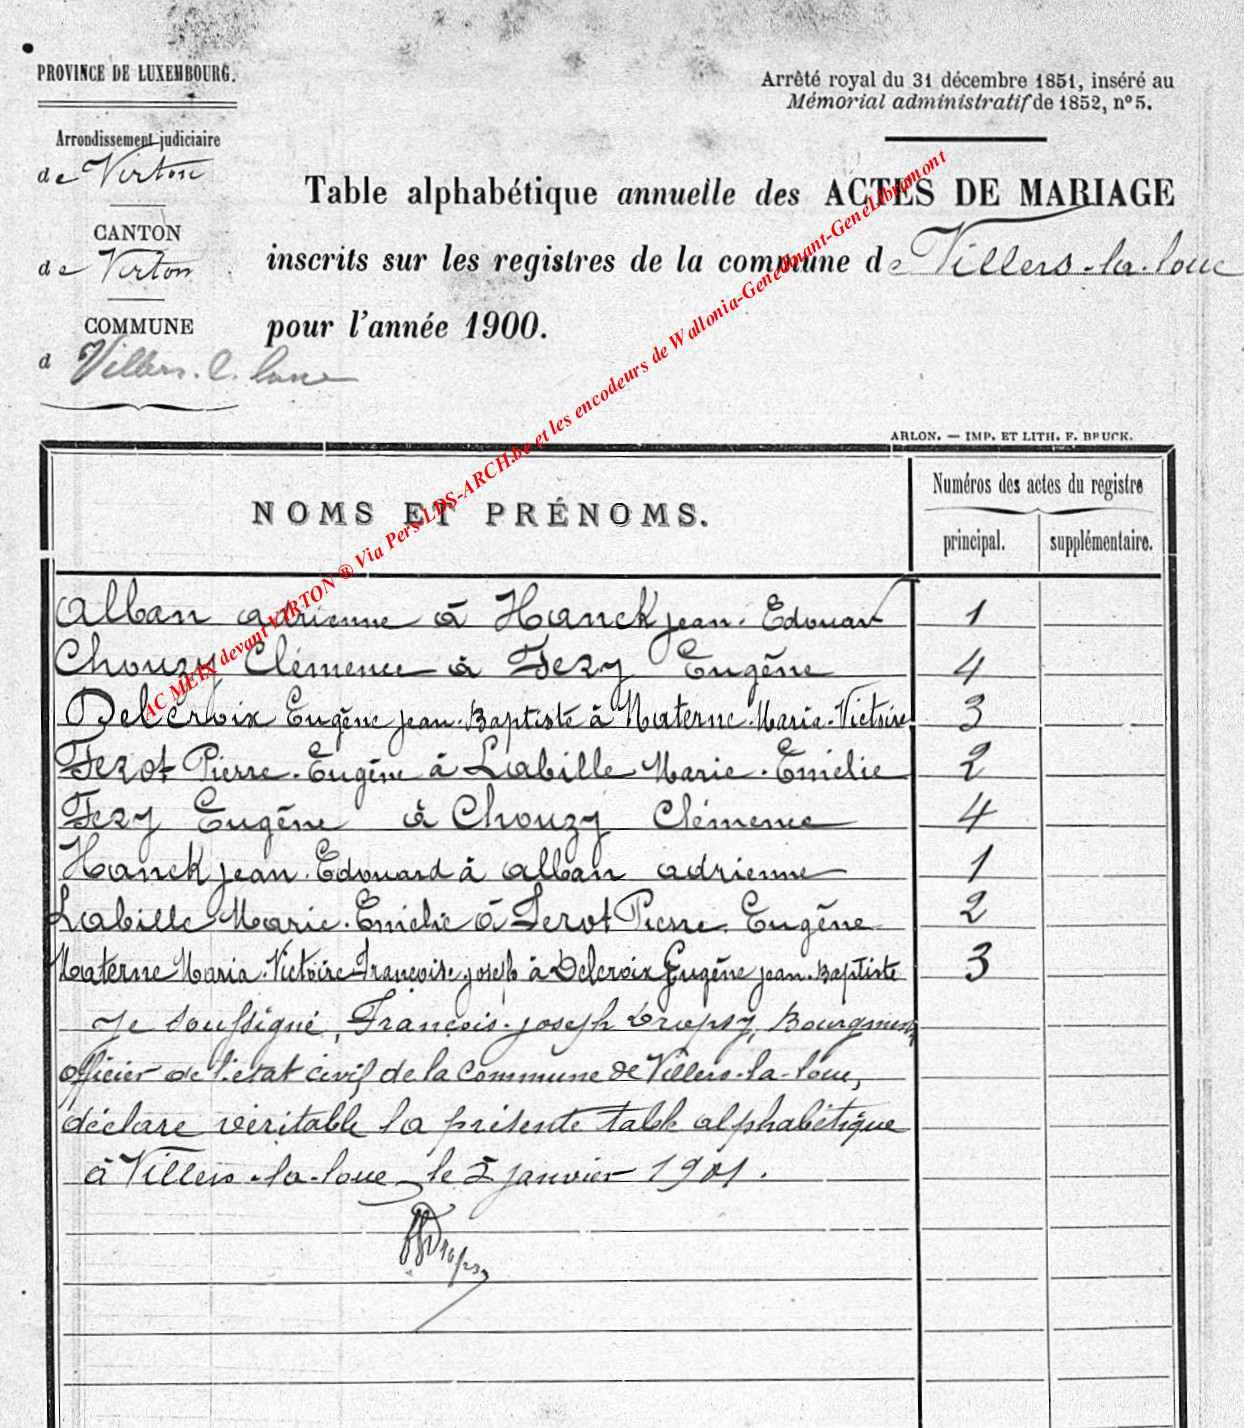 PROVINCE DE LUXEMBOURG.
Arrondissement judiciaire
de Virton
CANTON
de Virton
COMMUNE
d Villers-l-loue
Arrêté royal du 31 décembre 1851, inséré au
Mémorial administratif de 1852, nº 5.
Table alphabétique annuelle des ACTES DE MARIAGE
inscrits sur les registres de la commune de Villers-la-loue
pour l'année 1900.
ARLON. — IMP. ET LITH. F. BRUCK.
NOMS ET PRÉNOMS.
Numéros des actes du registre
principal. supplémentaire.
Alban Adrienne à Hanck Jean-Edouard 1
Chouzy Clémence à Fezy Eugène 4
Delcroix Eugène Jean-Baptiste à Materne-Maria-Victoire 3
Ferot Pierre-Eugène à Labille Marie-Emélie 2
Fezy Eugène à Chouzy Clémence 4
Hanck Jean-Edouard à Alban Adrienne 1
Labille Marie-Emélie à Ferot Pierre-Eugène 2
Materne Maria-Victoire-Françoise-Joseph à Delcroix Eugène Jean-Baptiste 3
Je soussigné, François-Joseph Dropsy, Bourgmestre
officier de l'état civil de la commune de Villers-la-loue,
déclare véritable la présente table alphabétique
à Villers-la-loue, le 2 janvier 1901.
FJDropsy
AC METX devant VIRTON ® Via Pers-LDS-ARCH.be et les encodeurs de Wallonia-GeneDinant-GeneLibramont